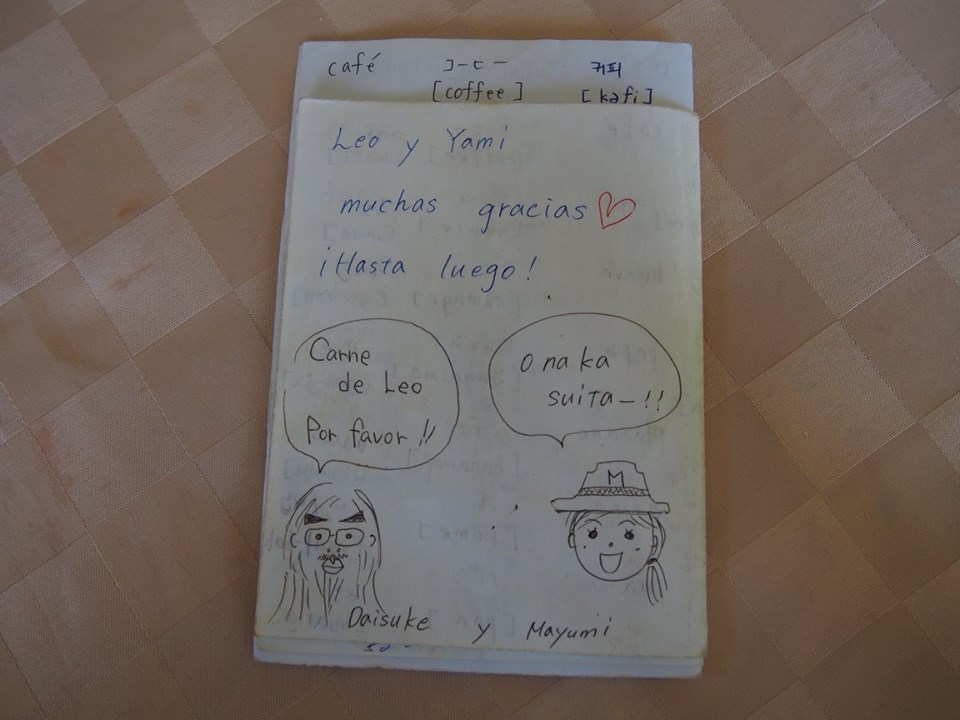 café コーヒー 커피
[coffee] [kəfi]
Leo y Yami
muchas gracias
¡Hasta luego!
Carne
de Leo
Por favor!!
O na ka
suita—!!
M
Daisuke y Mayumi